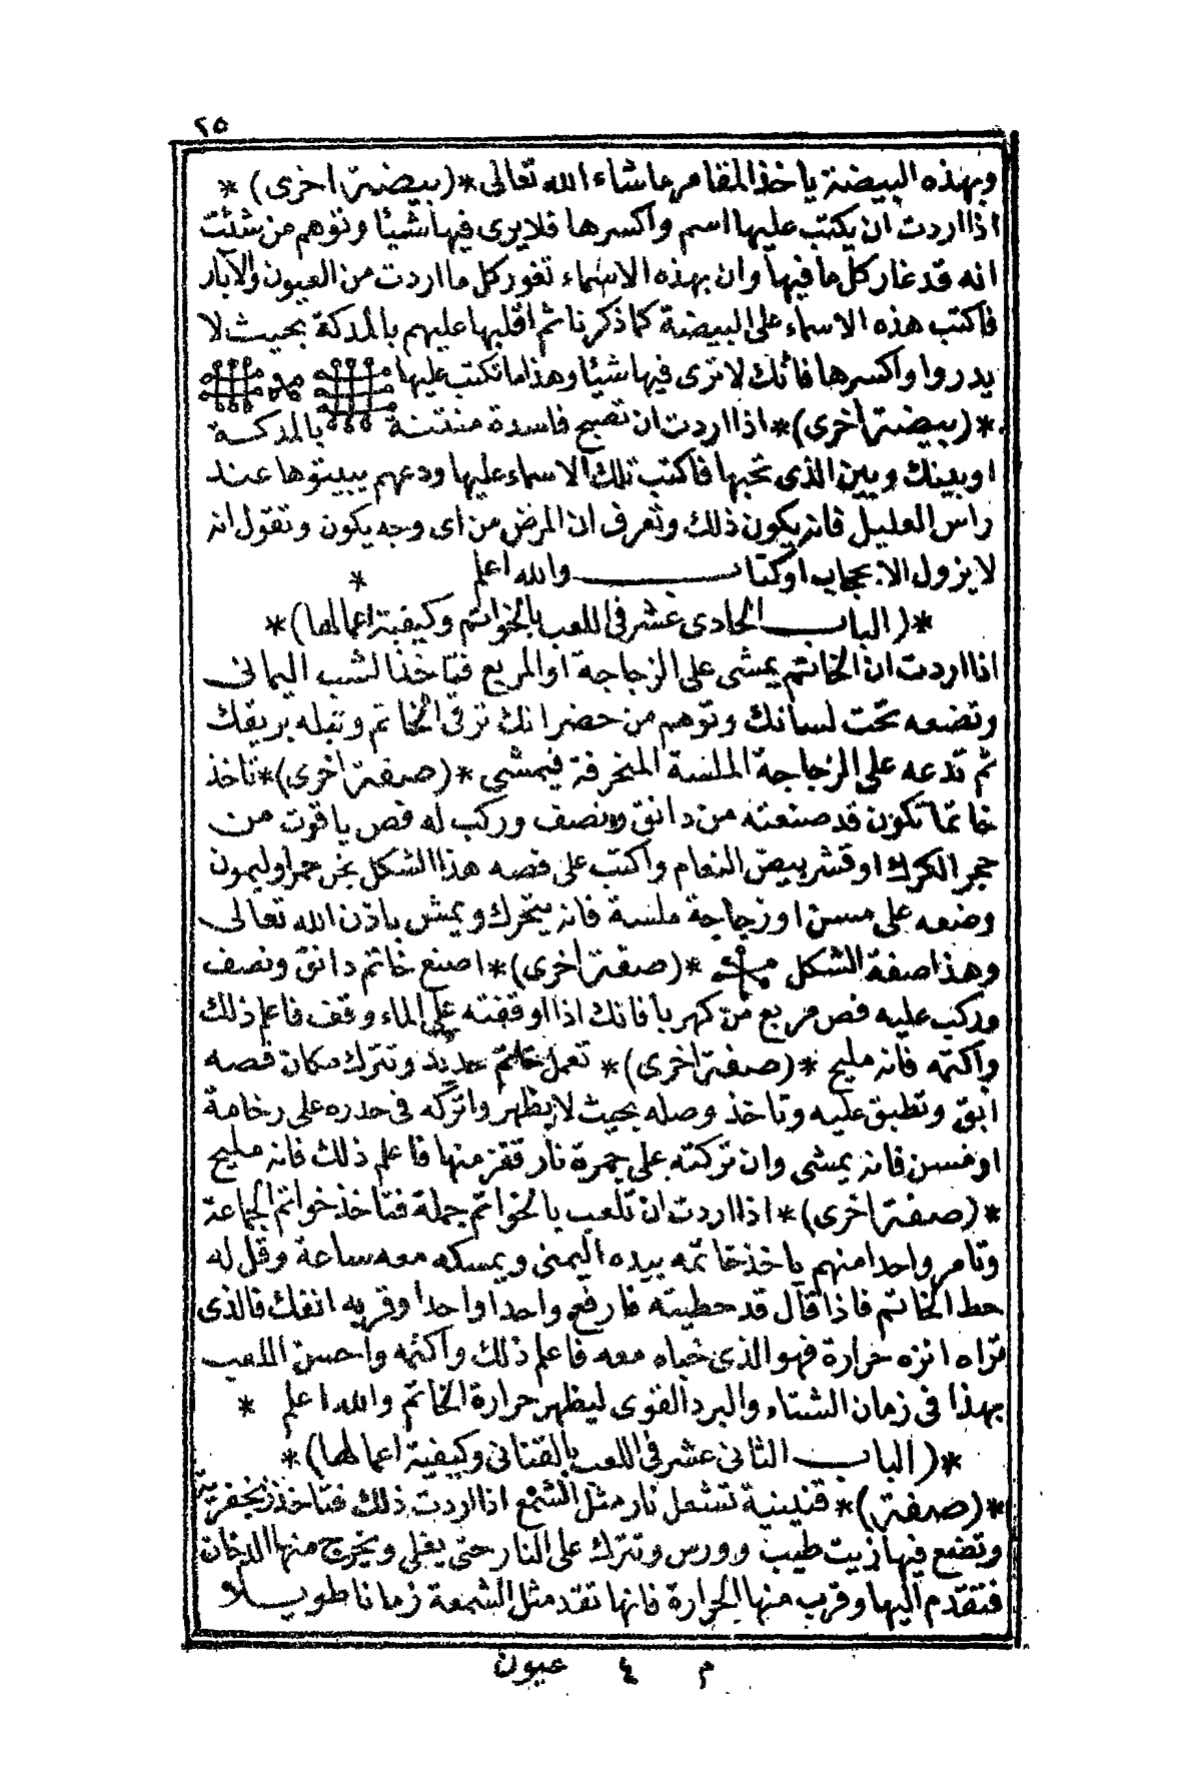 ٢٥
وبهذه البيضة ياخذ المقامر ماشاء الله تعالى *(بيضة اخرى)*
اذا اردت ان يكتب عليها اسم واكسرها فلايرى فيها شيئا وتوهم من شئت
انه قد غار كل ما فيها وان بهذه الاسماء تغور كل ما اردت من العيون والآبار
فاكتب هذه الاسماء على البيضة كما ذكرنا ثم اقلبها عليهم بالدكة بحيث لا
يدروا واكسرها فانك لا ترى فيها شيئا وهذا ما تكتب عليها
*(بيضة اخرى)* اذا اردت ان تصبح فاسدة منتنة بالمدكة
او بينك وبين الذى تحبها فاكتب تلك الاسماء عليها ودعهم يبيتوها عند
راس العليل فانه يكون ذلك وتعرف ان المرض من اى وجه يكون وتقول انه
لا يزول الا بحجاب او كتاب والله اعلم *
*(الباب الحادى عشر فى اللعب بالخواتم وكيفية اعمالها)*
اذا اردت ان الخاتم يمشى على الزجاجة او المربع فتاخذ الشب اليمانى
وتضعه تحت لسانك وتوهم من حضر انك ترقى الخاتم وتبله بريقك
ثم تدعه على الزجاجة الملسة المنحرفة فيمشى *(صفة اخرى)* تاخذ
خاتما تكون قد صنعته من دانق ونصف وركب له فص ياقوت من
حجر الكرك او قشر بيض النعام واكتب على فصه هذا الشكل بخى حمر اوليمون
وضعه على مسن او زجاجة ملسة فانه يتحرك ويمش باذن الله تعالى
وهذا صفة الشكل *(صفة اخرى)* اصنع خاتم دانق ونصف
وركب عليه فص مربع من كهربا فانك اذا اوقفته على الماء وقف فاعلم ذلك
واكتمه فانه مليح *(صفة اخرى)* تعمل خاتم حديد وتترك مكان فصه
ابق وتطبق عليه وتاخذ وصله بحيث لا يظهر واتركه فى حدره على رخامة
او مسن فانه يمشى وان تركته على جمرة نار قفز منها فاعلم ذلك فانه مليح
*(صفة اخرى)* اذا اردت ان تلعب بالخواتم جملة فتاخذ خواتم الجماعة
وتامر واحدا منهم ياخذ خاتمه بيده اليمنى ويمسكه معه ساعة وقل له
حط الخاتم فاذا قال قد حطيته فارفع واحدا واحدا وقربه انفك فالذى
تراه انزه حرارة فهو الذى خباه معه فاعلم ذلك واكتمه واحسن اللعب
بهذا فى زمان الشتاء والبرد القوى ليظهر حرارة الخاتم والله اعلم *
*(الباب الثانى عشر فى اللعب بالقنانى وكيفية اعمالها)*
*(صفة)* قنينية تشعل نار مثل الشمع اذا اردت ذلك فتاخذ زنجفرية
وتضع فيها زيت طيب وورس وتترك على النار حتى يغلى ويخرج منها الدخان
فتقدم اليها وقرب منها الحرارة فانها تقد مثل الشمعة زمانا طويلا
م ٤ عيون